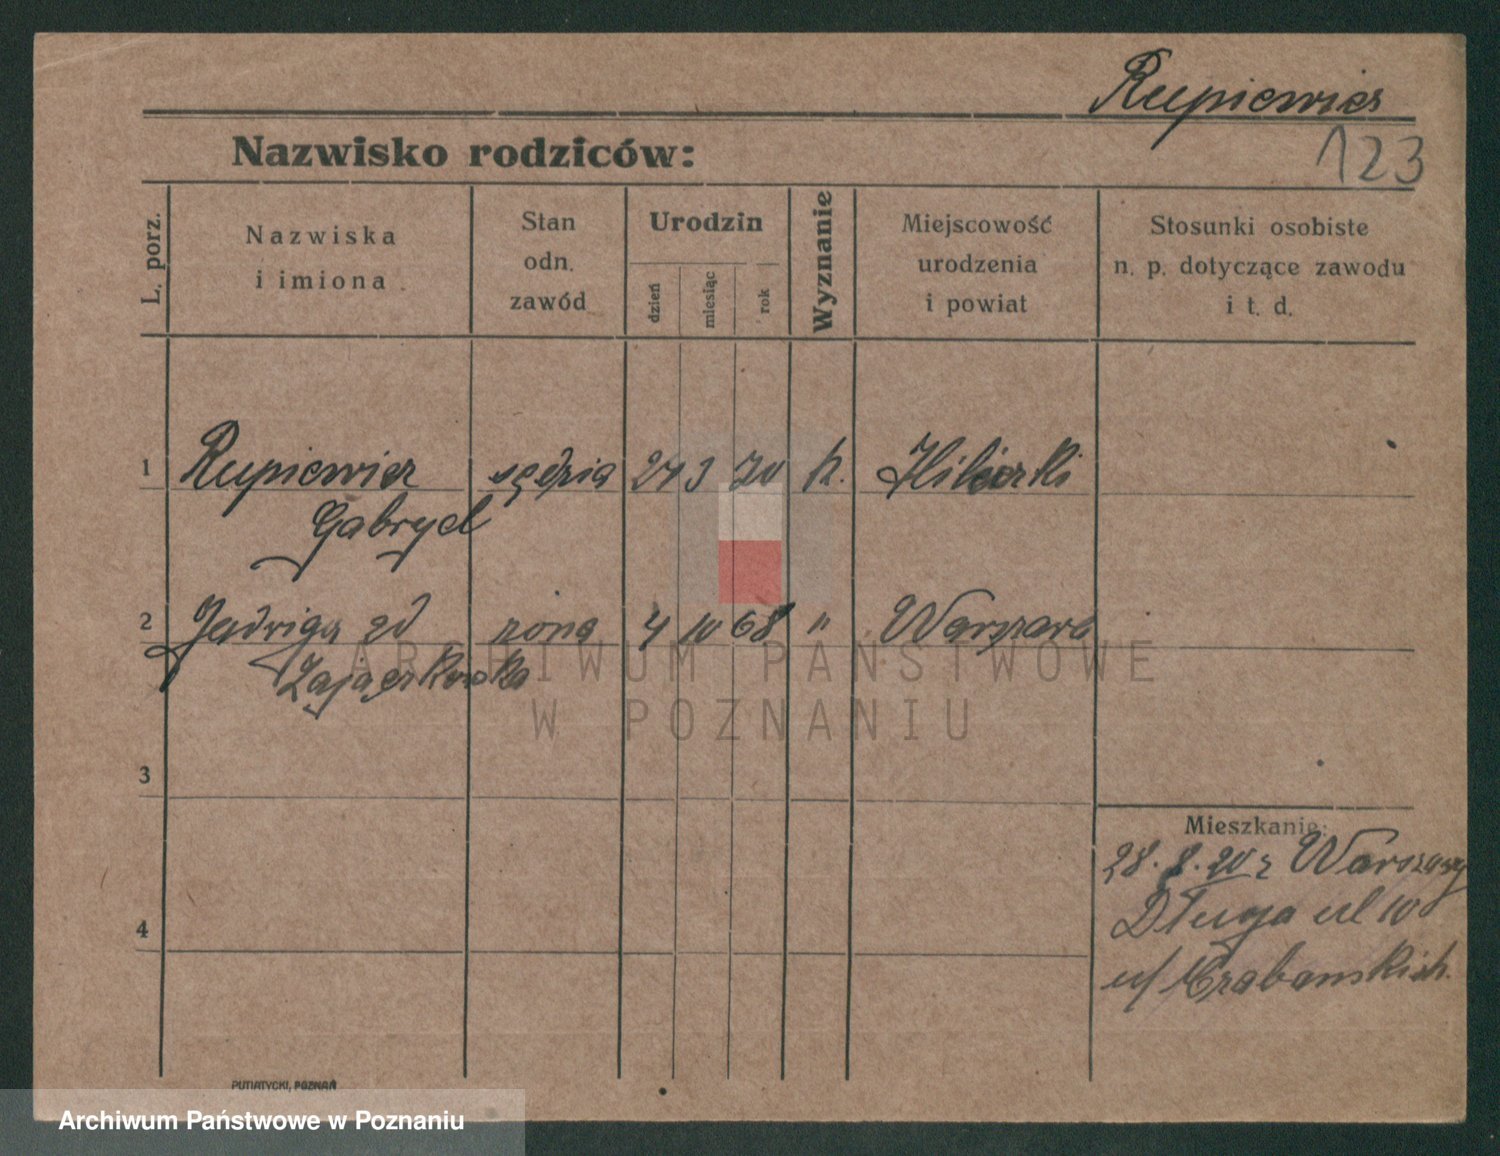 Rupiewicz
123
Nazwisko rodziców:
L. porz.
Nazwiska
i imiona
Stan
odn.
zawód
Urodzin
dzień
miesiąc
rok
Wyznanie
Miejscowość
urodzenia
i powiat
Stosunki osobiste
n. p. dotyczące zawodu
i t. d.
1 Rupiewicz sędzia 24 3 70 k.
Gabryel
2 Jadwiga zd żona 4 10 68 " Warszawa
Zajączkowska
ARCHIWUM PAŃSTWOWE
W POZNANIU
3
Mieszkanie:
28. 8. 20 z Warszawy
Długa ul 10
4
u/
PUTIATYCKI, POZNAŃ
Archiwum Państwowe w Poznaniu